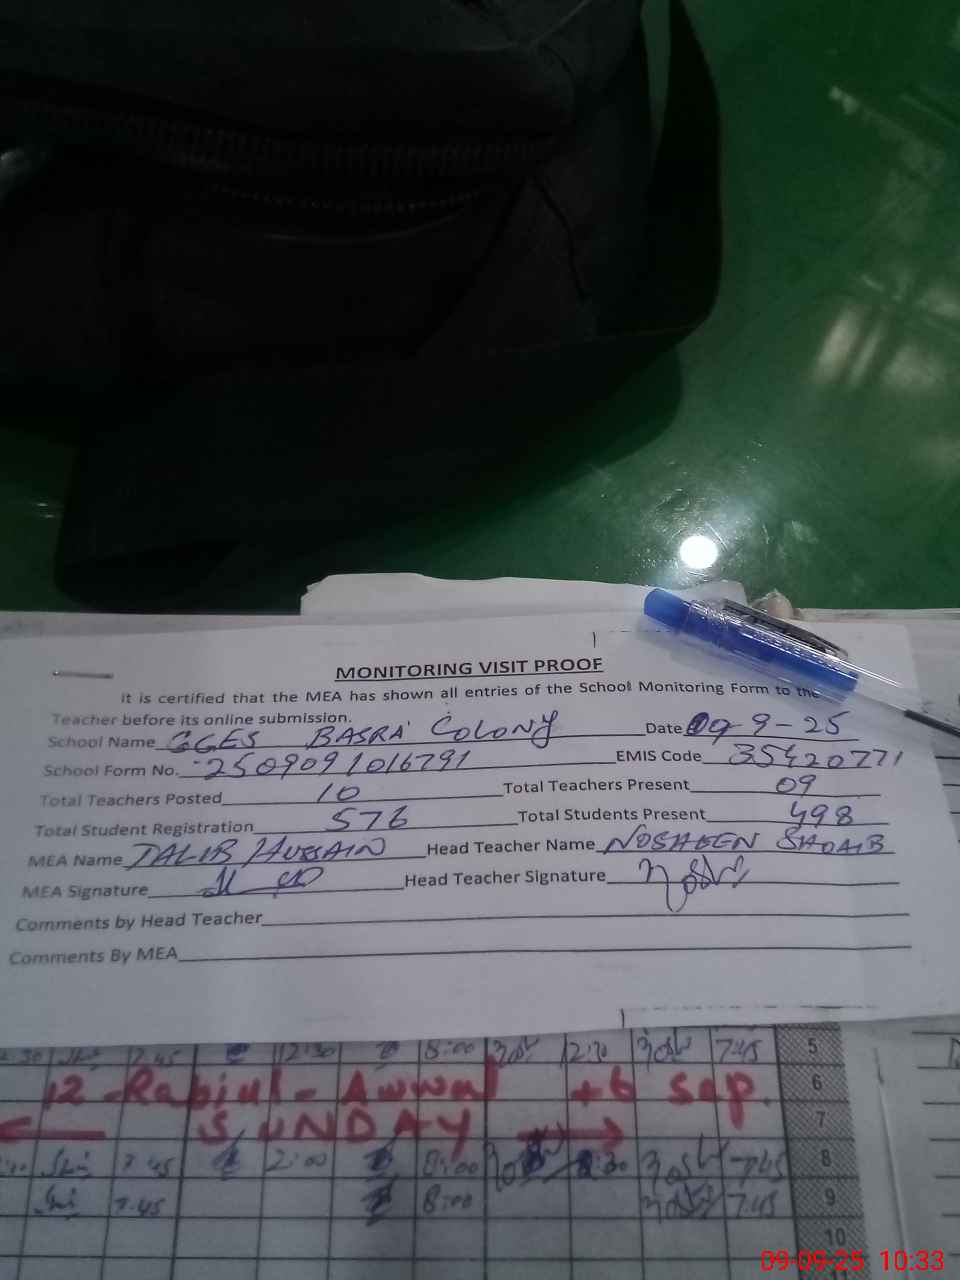 MONITORING VISIT PROOF
It is certified that the MEA has shown all entries of the School Monitoring Form to the
Teacher before its online submission.
School Name GGES BASRA COLONY Date 09-9-25
School Form No. 2509091016791 EMIS Code 35420771
Total Teachers Posted 10 Total Teachers Present 09
Total Student Registration 576 Total Students Present 498
MEA Name TALIB HUSSAIN Head Teacher Name NOSHEEN SHOAIB
MEA Signature Head Teacher Signature
Comments by Head Teacher
Comments By MEA
7:45 12:30 8:00 12:30 7:45 5
12-Rabiul-Awwal +6 Sep. 6
SUNDAY 7
7:45 2:00 8:00 7:45 8
7:45 8:00 7:45 9
10
09-09-25 10:33